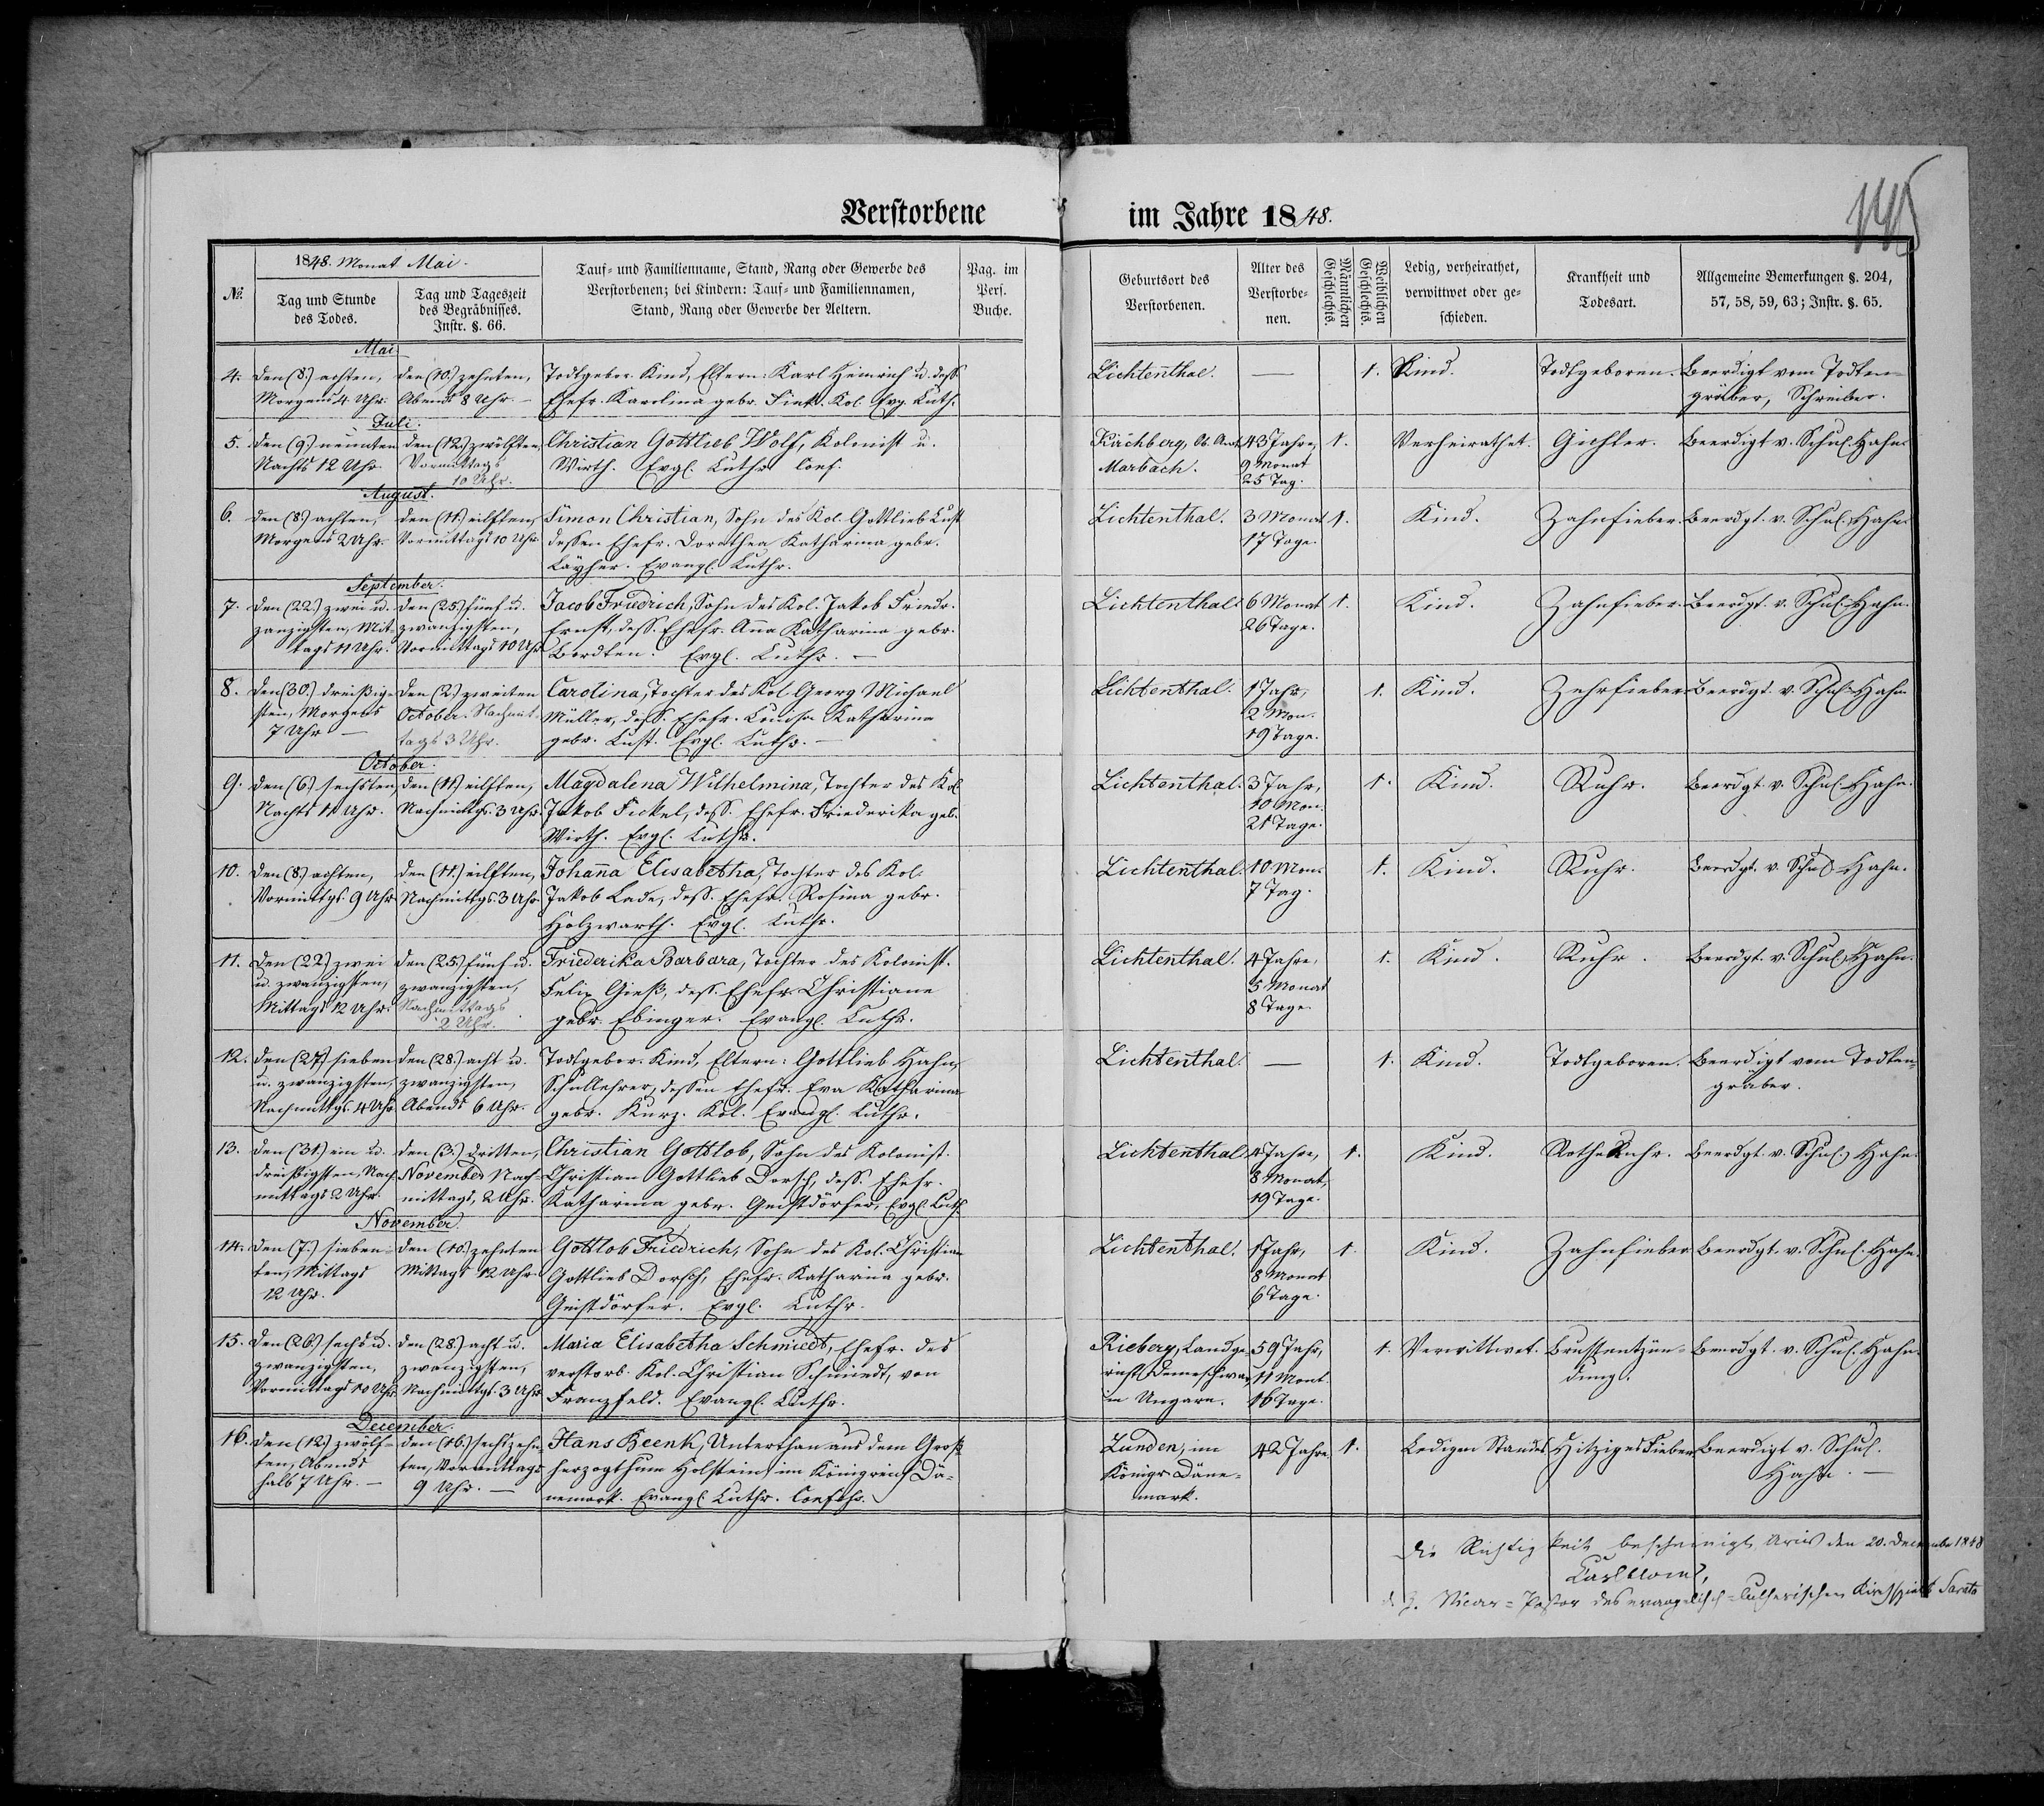 Verstorbene im Jahre 1848.
145
1848. Monat Mai.
№.
Tag und Stunde
des Todes.
Tag und Tageszeit
des Begräbnisses.
Instr. §. 66.
Tauf- und Familienname, Stand, Rang oder Gewerbe des
Verstorbenen; bei Kindern: Tauf- und Familiennamen,
Stand, Rang oder Gewerbe der Aeltern.
Pag. im
Pers.
Buche.
Geburtsort des
Verstorbenen.
Alter des
Verstorbe-
nen.
Männlichen
Geschlechts.
Weiblichen
Geschlechts.
Ledig, verheirathet,
verwittwet oder ge-
schieden.
Krankheit und
Todesart.
Allgemeine Bemerkungen §. 204,
57, 58, 59, 63; Instr. §. 65.
Mai
4. den (8.) achten, den (10.) zehnten, Todtgebor. Kind, Eltern: Karl Heinrich u. dess. Lichtenthal. — 1. Kind. Todtgeboren. Beerdigt vom Todten-
Morgens 4 Uhr. Abends 8 Uhr. – Ehefr. Karolina gebr. Kol. Evg. Luth. gräber, Schreiber.
Juli.
5. den (9.) neunten den (12.) zwölften, Christian Gottlieb Wolf, Kolonist u. Kirchberg, Ob. Amt 43 Jahre, 1. Verheirathet. Gichter. Beerdigt v. Schul. Hahn.
Nachts 12 Uhr. Vormittags Wirth. Evgl. Luthr. Conf. Marbach. 9 Monat
10 Uhr. 25 Tag.
August.
6. den (8.) achten, den (11.) eilften, Simon Christian, Sohn des Kol. Gottlieb Lust Lichtenthal. 3 Monat 1. Kind. Zahnfieber. Beerdgt. v. Schul. Hahn.
Morgens 2 Uhr. Vormittags 10 Uhr. dessen Ehefr. Dorothea Katharina gebr. 17 Tage.
Läyher. Evangl. Luthr.
September.
7. den (22.) zwei u. den (25.) fünf u. Jacob Friedrich, Sohn des Kol. Jakob Friedr. Lichtenthal. 6 Monat 1. Kind. Zahnfieber. Beerdgt. v. Schul. Hahn.
zanzigsten, Mit- zwanzigsten, Ernst, dess. Ehefr. Anna Katharina gebr. 26 Tage.
tags 11 Uhr. Vormittags 10 Uhr Evgl. Luthr. –
8. den (30.) dreißig- den (2.) zweiten Carolina, Tochter des Kol. Georg Michael Lichtenthal. 1 Jahr, 1. Kind. Zehrfieber Beerdgt. v. Schul. Hahn
sten, Morgens October. Nachmit- Müller, dess. Ehefr. Louisa Katharina 2 Mon.
7 Uhr – tags 3 Uhr. gebr. Lust. Evgl. Luthr. – 19 Tage.
October.
9. den (6.) sechsten, den (11.) eilften, Magdalena Wilhelmina, Tochter des Kol. Lichtenthal. 3 Jahr, 1. Kind. Ruhr. Beerdgt. v. Schul. Hahn.
Nachts 11 Uhr. Nachmittgs. 3 Uhr. Jakob Fickel, dess. Ehefr. Friederika geb. 10 Mon.
Wirth. Evgl. Luthr. 21 Tage.
10. den (8.) achten, den (11.) eilften, Johanna Elisabetha, Tochter des Kol. Lichtenthal. 10 Mon. 1. Kind. Ruhr. Beerdgt. v. Schul. Hahn.
Vormittgs. 9 Uhr Nachmittgs. 3 Uhr Jakob Lade, dess. Ehefr. Rosina gebr. 7 Tag.
Holzwarth. Evgl. Luthr.
11. den (22.) zwei den (25.) fünf u. Friederika Barbara, Tochter des Kolonist. Lichtenthal. 4 Jahre, 1. Kind. Ruhr. Beerdgt. v. Schul. Hahn.
u. zwanzigsten, zwanzigsten, Felix Gieß, dess. Ehefr. Christiane 5 Monat
Mittags 12 Uhr. Nachmittags gebr. Ebinger. Evangl. Luthr. 8 Tage.
2 Uhr.
12. den (27.) sieben den (28.) acht u. Todtgebor. Kind, Eltern: Gottlieb Hahn, Lichtenthal. — 1. Kind. Todtgeboren. Beerdigt vom Todten-
u. zwanzigsten, zwanzigsten, Schullehrer, dessen Ehefr. Eva Katharina gräber.
Nachmittgs. 4 Uhr Abends 6 Uhr. gebr. Kurz. Kol. Evangl. Luthr.
13. den (31.) ein u. den (3.) dritten, Christian Gottlob, Sohn des Kolonist. Lichtenthal 4 Jahre, 1. Kind. Rothe Ruhr. Beerdgt. v. Schul. Hahn.
dreißigsten, Nach- November Nach- Christian Gottlieb Dorsch, dess. Ehefr. 8 Monat,
mittags 2 Uhr. mittags, 2 Uhr. Katharina gebr. Geistdörfer, Evgl. Luth. 19 Tage.
November.
14. den (7.) sieben- den (10.) zehnten Gottlob Friedrich, Sohn des Kol. Christian Lichtenthal. 1 Jahr, 1. Kind. Zahnfieber Beerdgt. v. Schul. Hahn.
ten, Mittags Mittags 12 Uhr. Gottlieb Dorsch, Ehefr. Katharina gebr. 8 Monat
12 Uhr. Geistdörfer. Evgl. Luthr. 6 Tage.
15. den (26.) sechs u. den (28.) acht u. Maria Elisabetha Schmiedt, Ehefr. des Rieberg, Landge- 59 Jahr, 1. Verwittwet. Brustentzün- Beerdgt. v. Schul. Hahn.
zwanzigsten, zwanzigsten, verstorb. Kol. Christian Schmiedt, von richt 11 Mont. dung.
Vormittags 10 Uhr. Nachmittgs. 3 Uhr Franzfeld. Evangl. Luthr. in Ungarn. 16 Tage.
December.
16. den (12.) zwölf- den (16.) sechszehn- Hans Beenk, Unterthan aus dem Groß- Lunden, im 42 Jahre 1. Ledigen Standes Hitziges Fieber Beerdigt v. Schul.
ten, Abends ten, Vormittags herzogthum Holstein im Königreich Dä- Königr. Däne- Hahn. –
halb 7 Uhr. – 9 Uhr. – nemark. Evangl. Luthr. mark.
Die Richtigkeit bescheinigt den 20. December 1848
Vicar-Pastor des evangelisch-lutherischen Kirchspiels Sarata